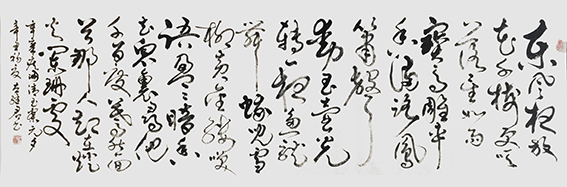 東風夜放
花千樹更吹
落星如雨
寶馬雕車
香滿路鳳
簫聲
動玉壺光
轉一夜魚龍
舞蛾兒雪
柳黃金縷笑
語盈盈暗香
去眾裏尋他
千百度驀然回
首那人却在燈
火闌珊處
辛棄疾詞青玉案元夕
辛丑初夏